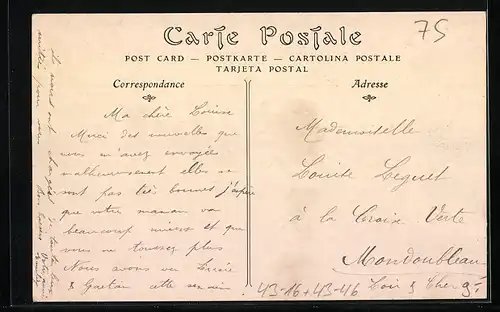 75
Carte Postale
POST CARD — POSTKARTE — CARTOLINA POSTALE
TARJETA POSTAL
Correspondance
Adresse
Ma chère Louise
Merci des nouvelles que
vous m'avez envoyées
malheureusement elles ne
sont pas très bonnes j'espère
que votre maman va
beaucoup mieux et que
vous ne toussez plus
Nous avons vu
& Gaëtan cette semaine
Mademoiselle
Louise Leguet
à la Croix Verte
Mondoubleau
Loir & Cher
43-16+43-46